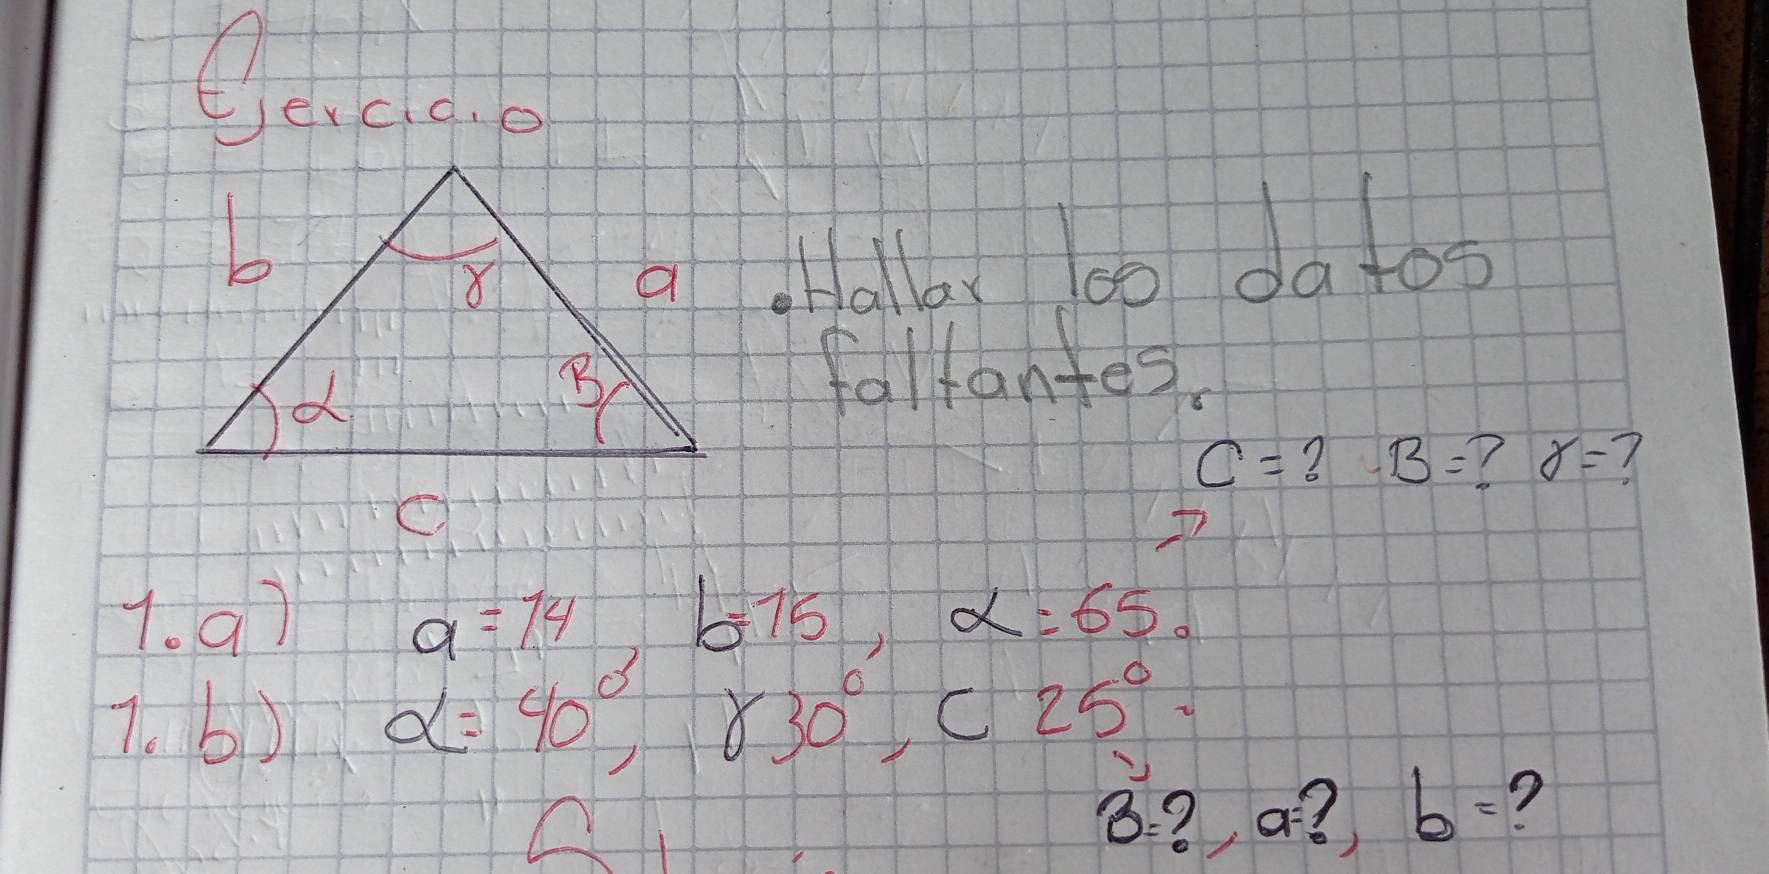 Ejercicio
b
γ
a
α
B
c
• Hallar los datos
faltantes.
C=? B=? γ=?
1.a) a=14, b=15, α=65.
1.b) α=40°, γ30°, C 25°.
B=?, a=?, b=?